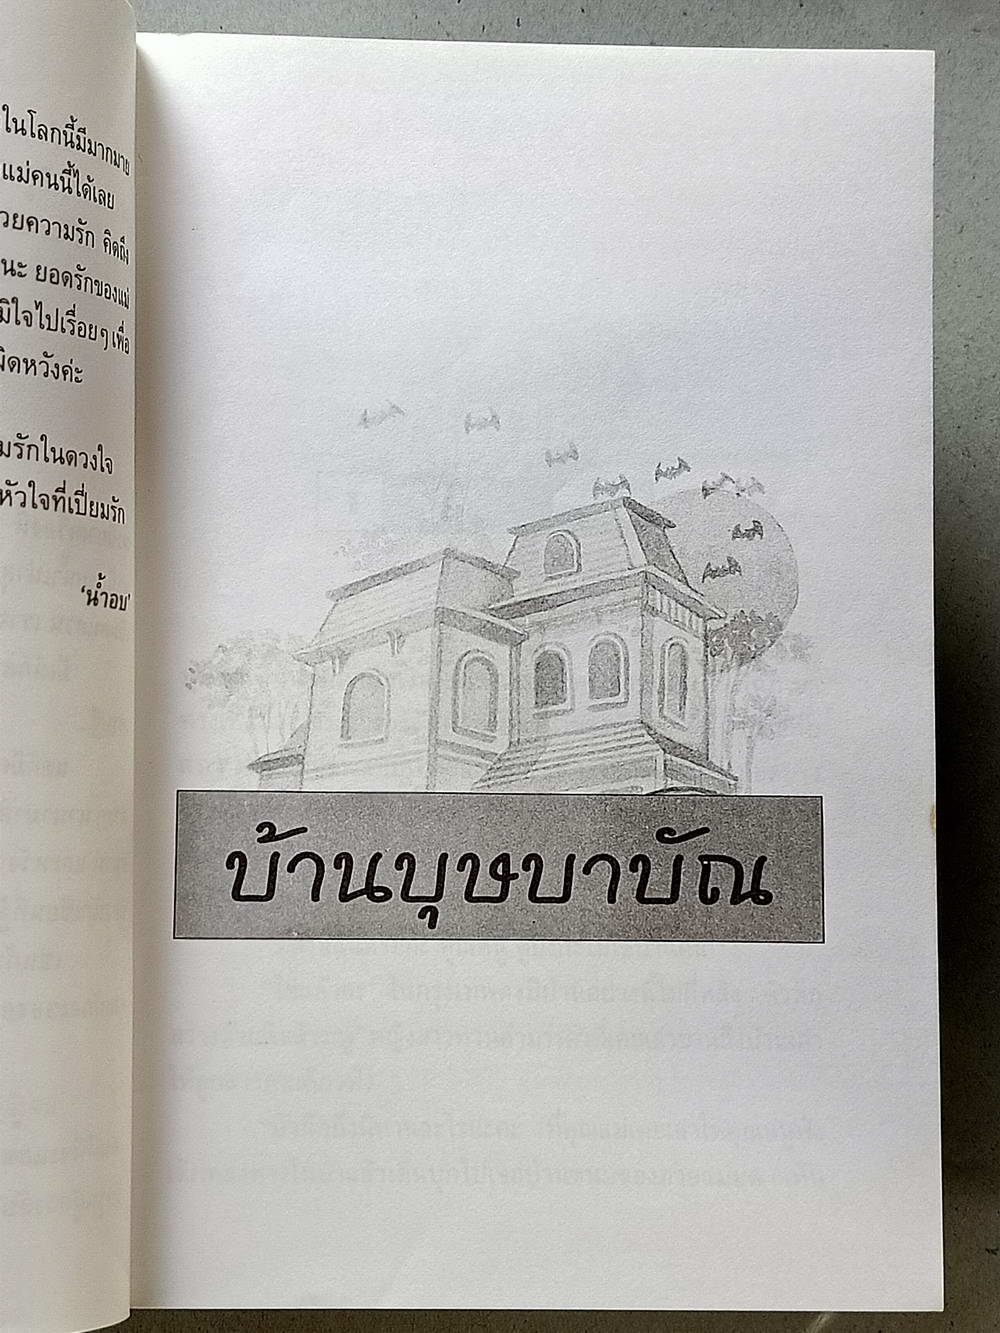 ในโลกนี้มีมากมาย
แม่คนนี้ได้เลย
วยความรัก คิดถึง
นะ ยอดรักของแม่
มิใจไปเรื่อยๆ เพื่อ
ผิดหวังค่ะ
มรักในดวงใจ
หัวใจที่เปี่ยมรัก
'น้ำอบ'
บ้านบุษบาบัณ